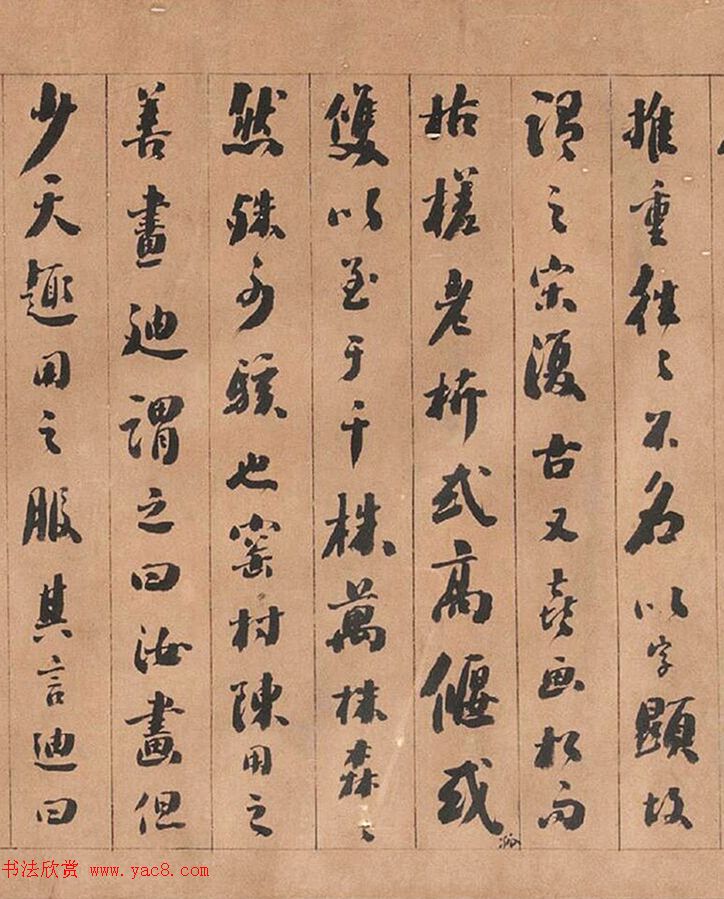 推重往〻不名以字顯故
謂之宋復古又喜画松而
枯槎老枿或高偃或
雙以至于千株萬株森〻
然殊可駭也窰村陳用之
善畫迪謂之曰汝畫但
少天趣用之服其言迪曰
书法欣赏 www.yac8.com